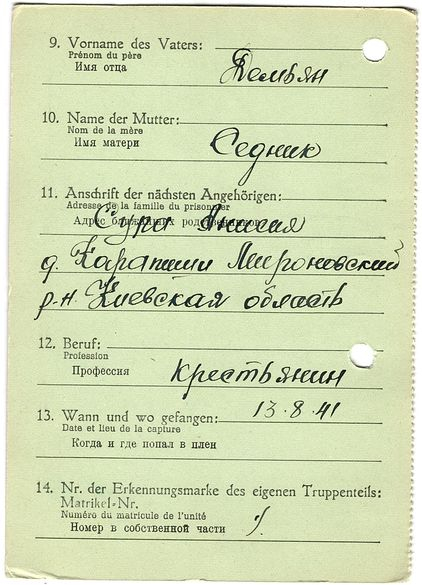 9. Vorname des Vaters:
Prénom du père
Имя отца
Демьян
10. Name der Mutter:
Nom de la mère
Имя матери
Седник
11. Anschrift der nächsten Angehörigen:
Adresse de la famille du prisonnier
Адрес ближайших родственников
Сура
д. Карапиши Мироновский
р-н. Киевская область
12. Beruf:
Profession
Профессия
Крестьянин
13. Wann und wo gefangen: 13.8.41
Date et lieu de la capture
Когда и где попал в плен
14. Nr. der Erkennungsmarke des eigenen Truppenteils:
Matrikel-Nr.
Numéro du matricule de l'unité
Номер в собственной части